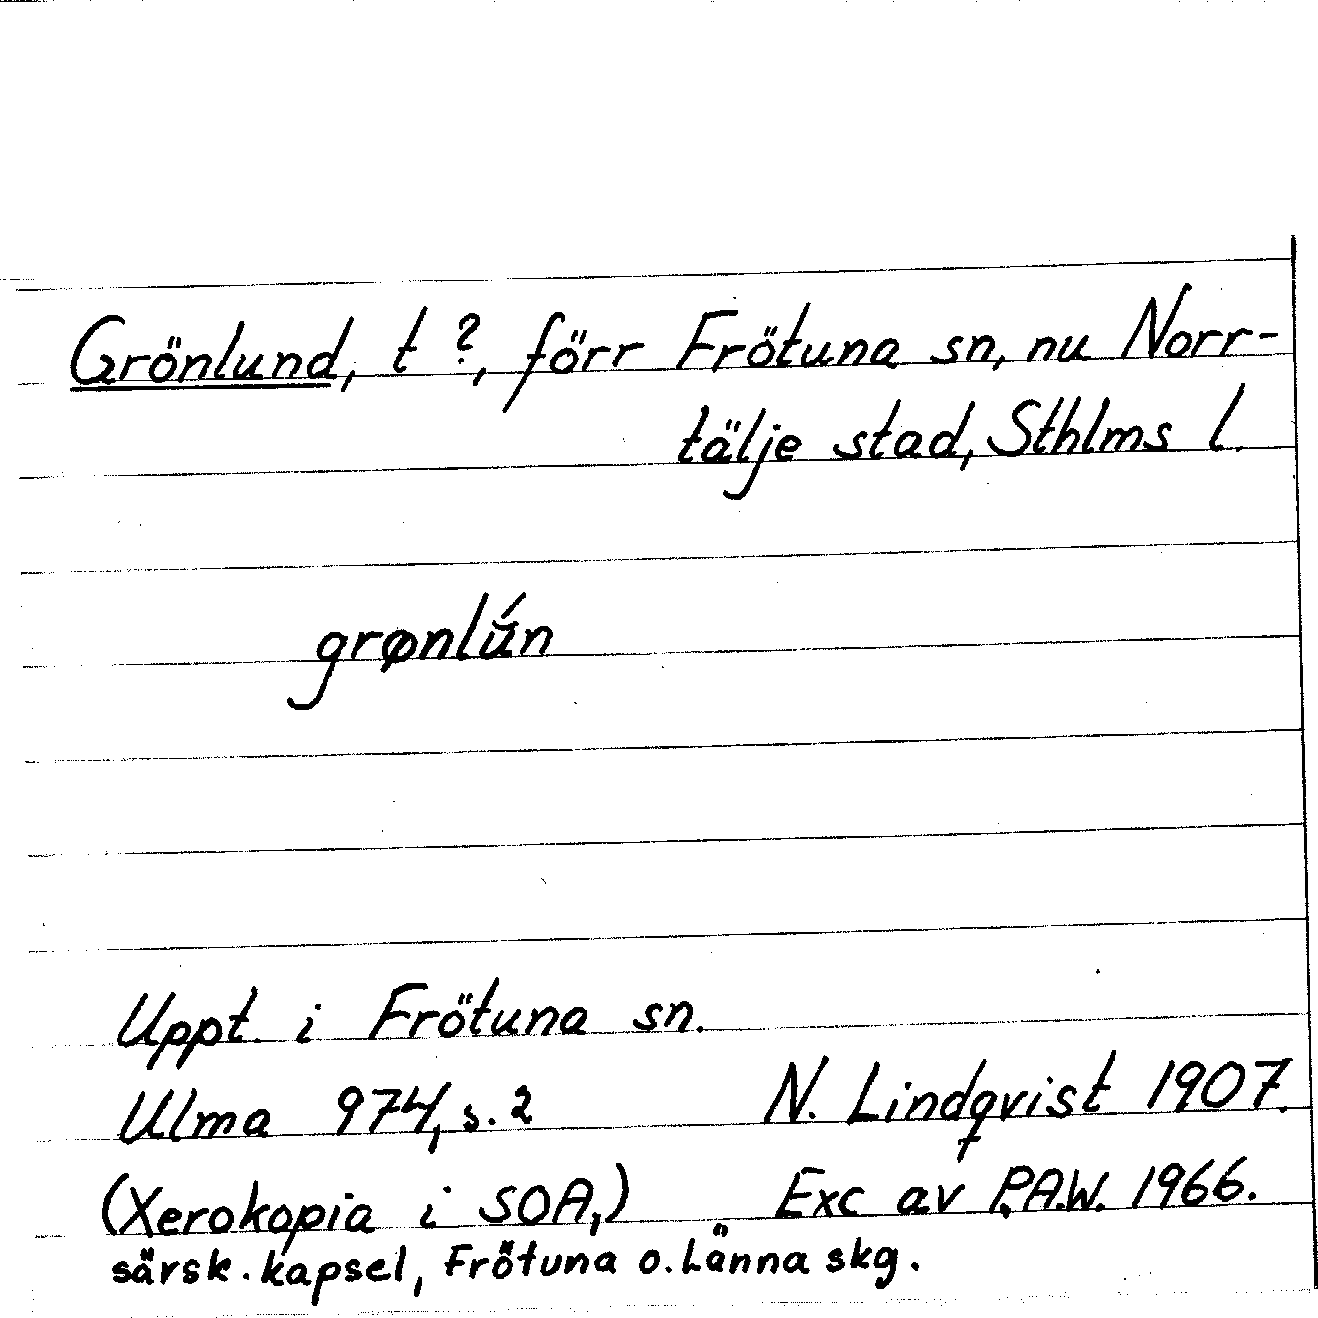 Grönlund, t ?, förr Frötuna sn, nu Norr-
tälje stad, Sthlms l.
grønlú̆n
Uppt. i Frötuna sn.
Ulma 974, s. 2 N. Lindqvist 1907.
(Xerokopia i SOA,) Exc av P.A.W. 1966.
särsk. kapsel, Frötuna o. Länna skg.